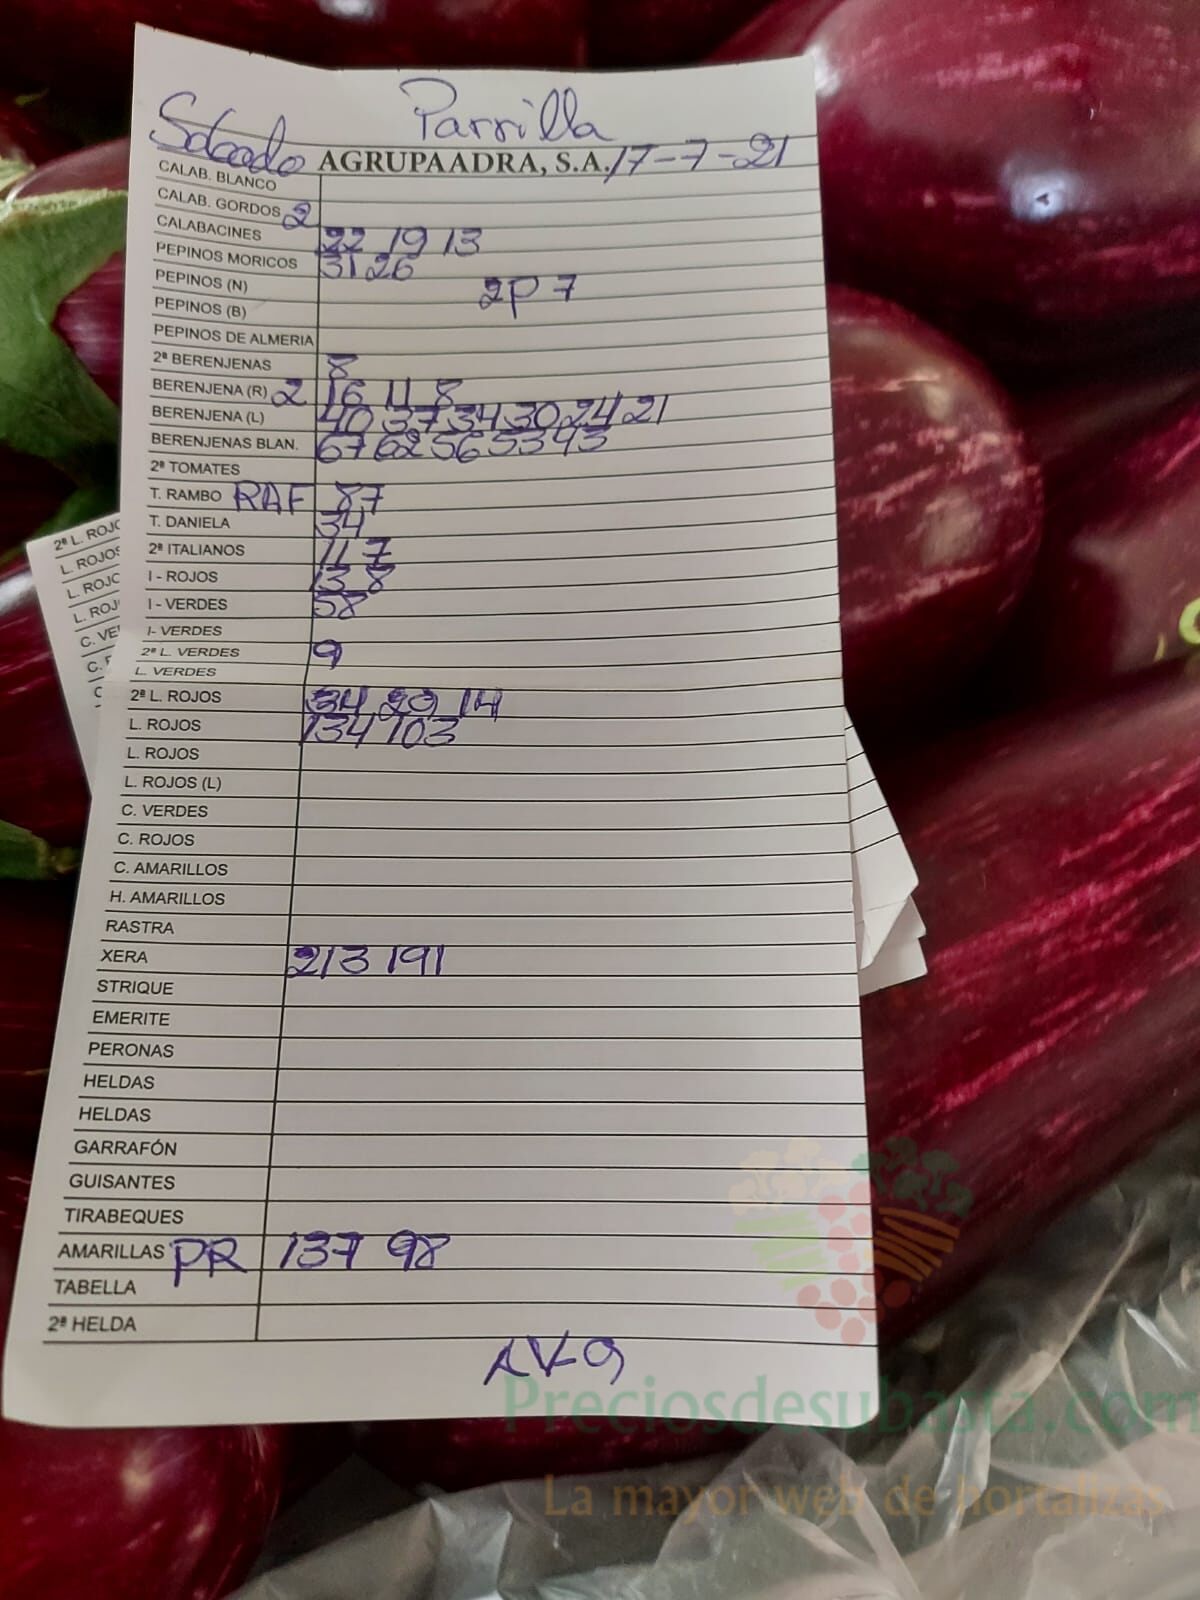 Parrilla
Sabado AGRUPAADRA, S.A. 17-7-21
CALAB. BLANCO
CALAB. GORDOS 2
CALABACINES 22 19 13
PEPINOS MORICOS 31 26
PEPINOS (N) 2P 7
PEPINOS (B)
PEPINOS DE ALMERIA
2ª BERENJENAS 8
BERENJENA (R) 2 16 11 8
BERENJENA (L) 40 37 34 30 24 21
BERENJENAS BLAN. 67 62 56 53 43
2ª TOMATES
T. RAMBO RAF 87
T. DANIELA 34
2ª ITALIANOS 11 7
I - ROJOS 13 8
I - VERDES 58
I- VERDES
2ª L. VERDES 9
L. VERDES
2ª L. ROJOS 34 20 14
L. ROJOS 134 103
L. ROJOS
L. ROJOS (L)
C. VERDES
C. ROJOS
C. AMARILLOS
H. AMARILLOS
RASTRA
XERA 213 191
STRIQUE
EMERITE
PERONAS
HELDAS
HELDAS
GARRAFÓN
GUISANTES
TIRABEQUES
AMARILLAS PR 137 98
TABELLA
2ª HELDA
AV-9
2ª L. ROJO
L. ROJOS
L. ROJO
L. ROJ
C. VE
C.
C
Preciosdesubasta.com
La mayor web de hortalizas